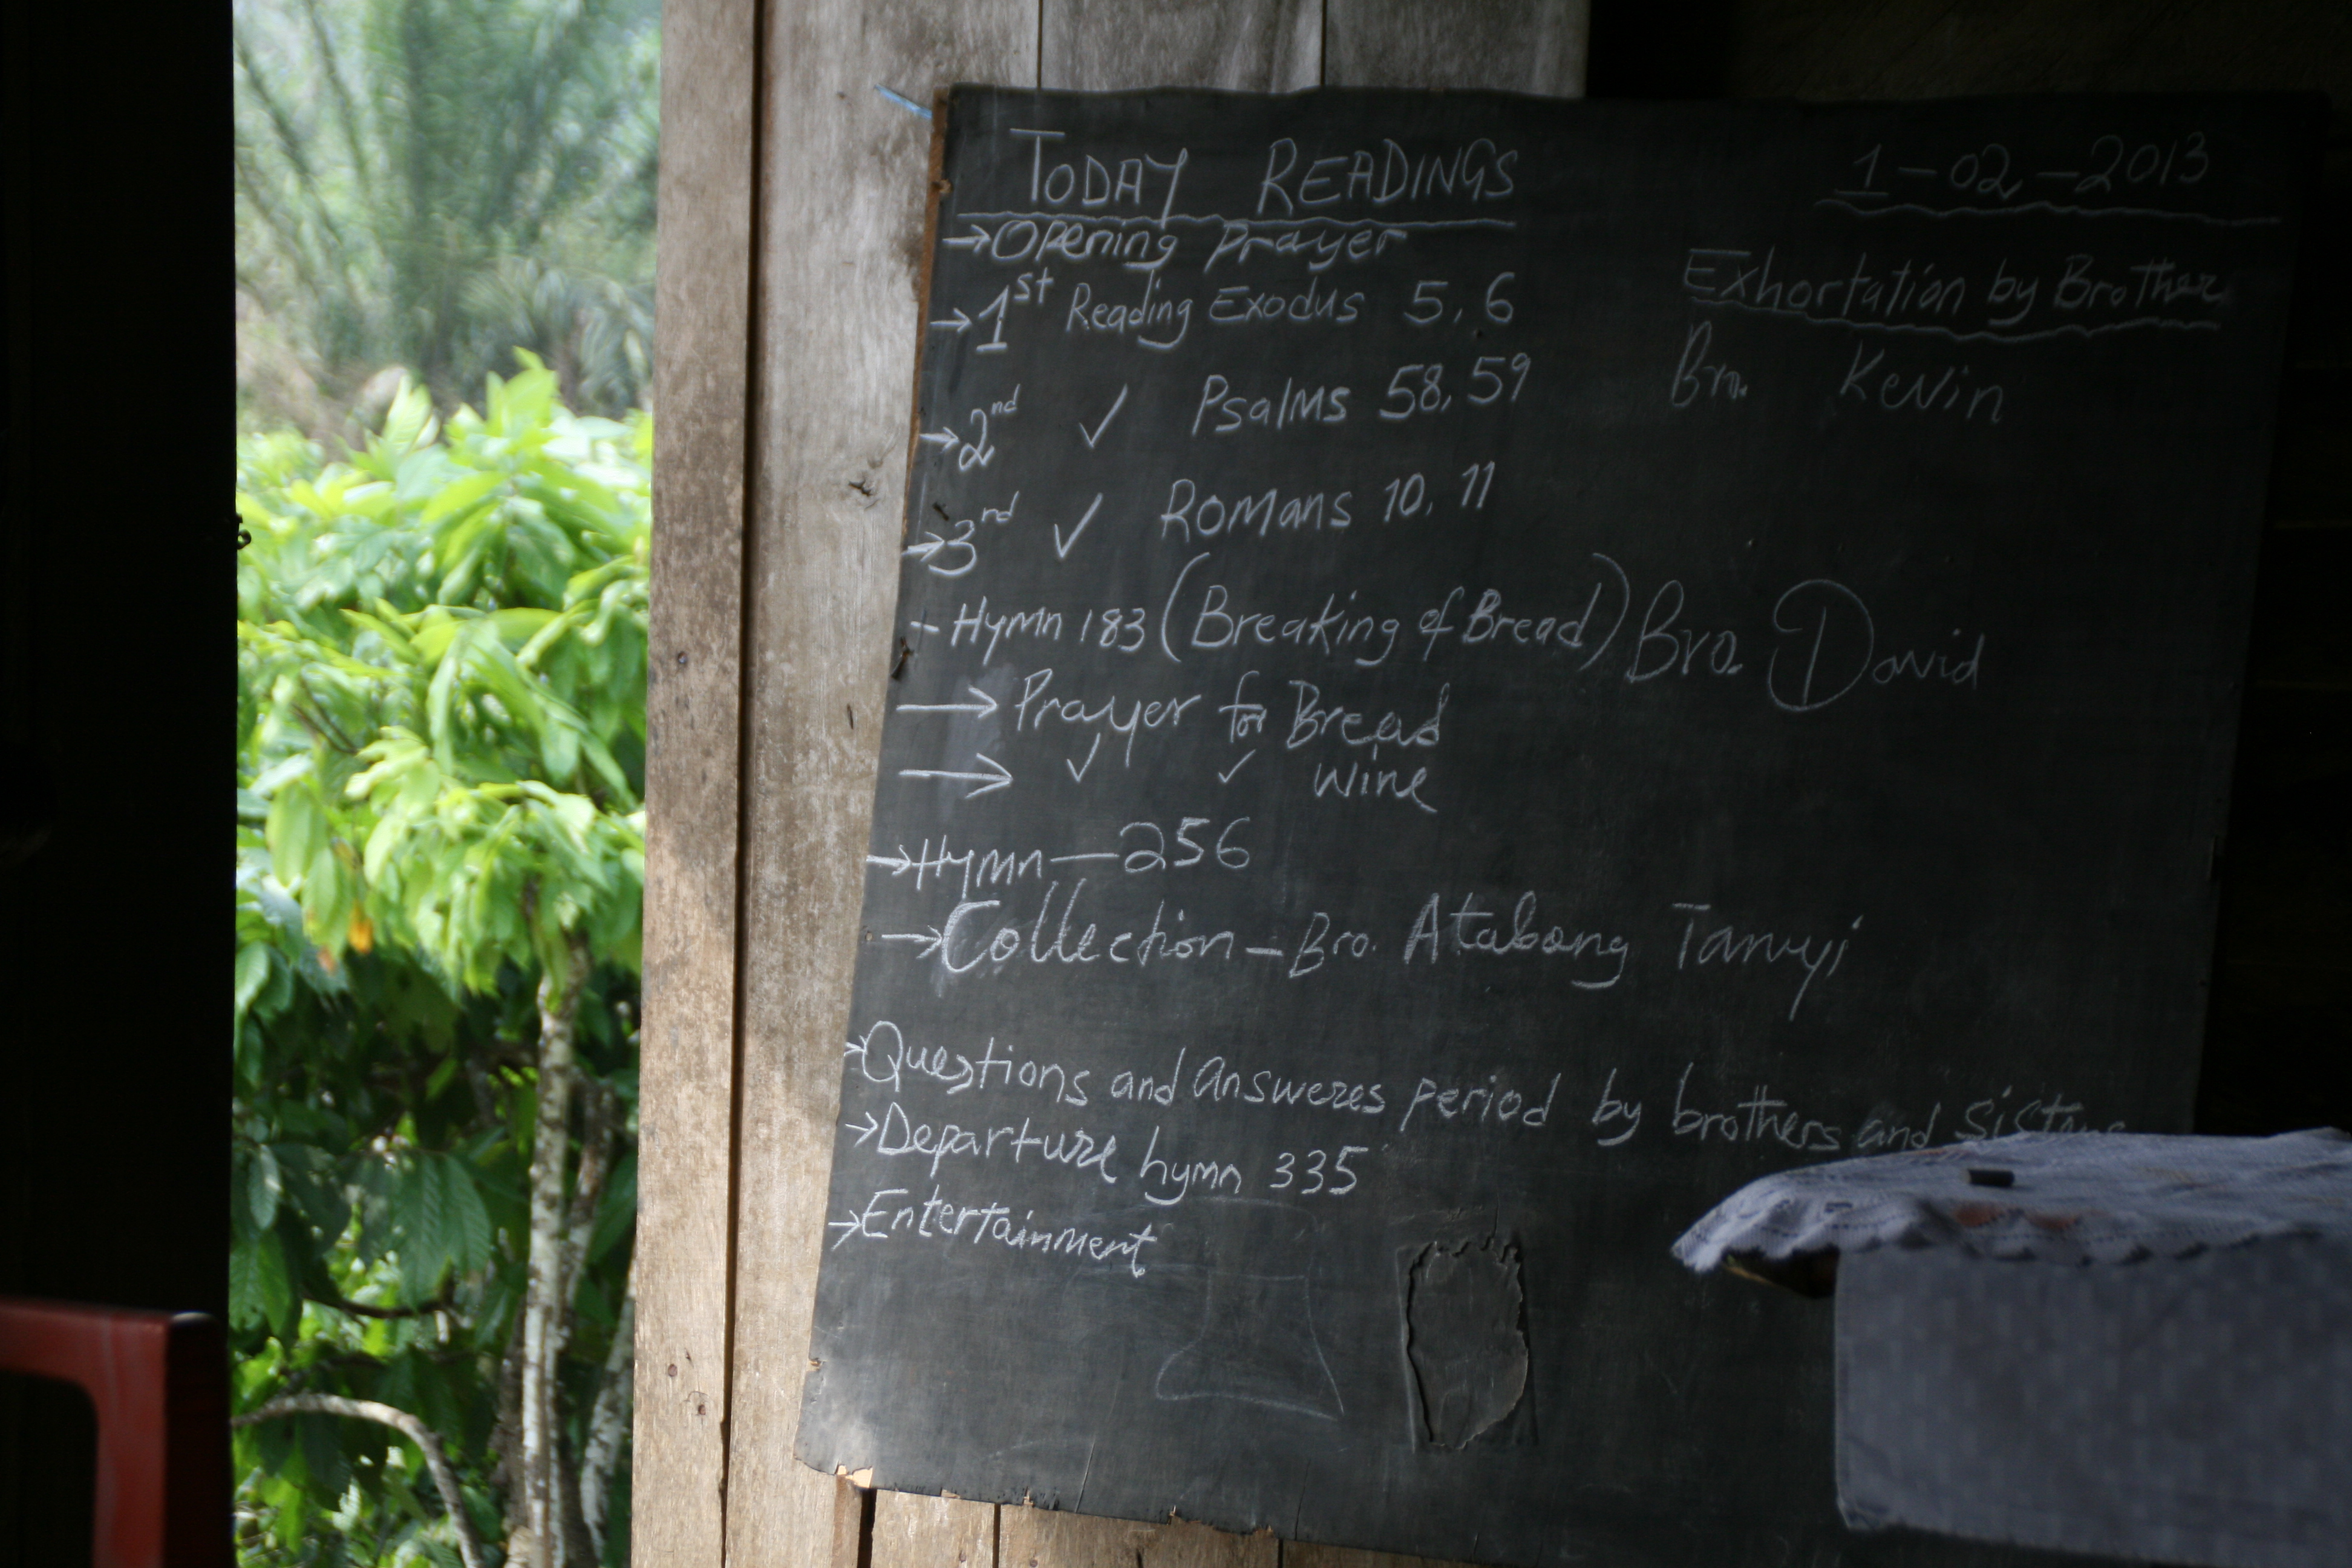 TODAY READINGS
1-02-2013
→Opening Prayer
→1st Reading Exodus 5, 6
→2nd ✓ Psalms 58, 59
→3nd ✓ Romans 10, 11
- Hymn 183 (Breaking of Bread) Bro. David
→ Prayer for Bread
→ ✓ ✓ Wine
→Hymn—256
→Collection—Bro. Atabong Tanyi
→Questions and answeres period by brothers and sisters
→Departure hymn 335
→Entertainment
Exhortation by Brother
Bro. Kevin